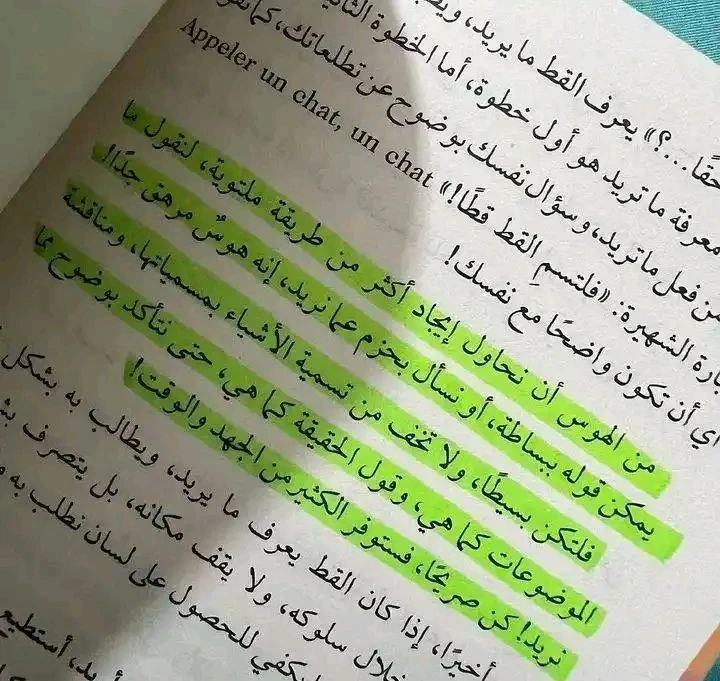 حقا...؟» يعرف القط ما يريد،
معرفة ما تريد هو أول خطوة، أما الخطوة
من فعل ما تريد، وسؤال نفسك بوضوح عن تطلعاتك، كما
الشهيرة: «فلتسمِ القط قطًا!» Appeler un chat, un chat
أي أن تكون واضحًا مع نفسك!
من الهوس أن نحاول إيجاد أكثر من طريقة ملتوية، لنقول ما
يمكن قوله ببساطة، أو نسأل بحزم عما نريد، إنه هوسٌ مرهق جدًا!
فلتكن بسيطًا، ولا تخف من تسمية الأشياء بمسمياتها، ومناقشة
الموضوعات كما هي، وقول الحقيقة كما هي، حتى نتأكد بوضوح مما
نريد! كن صريحًا، فستوفر الكثير من الجهد والوقت!
أخيرًا، إذا كان القط يعرف ما يريد، ويطالب به بشكل
خلال سلوكه، ولا يقف مكانه، بل يتصرف
يكفي للحصول على لسان نطلب به
أستطيع